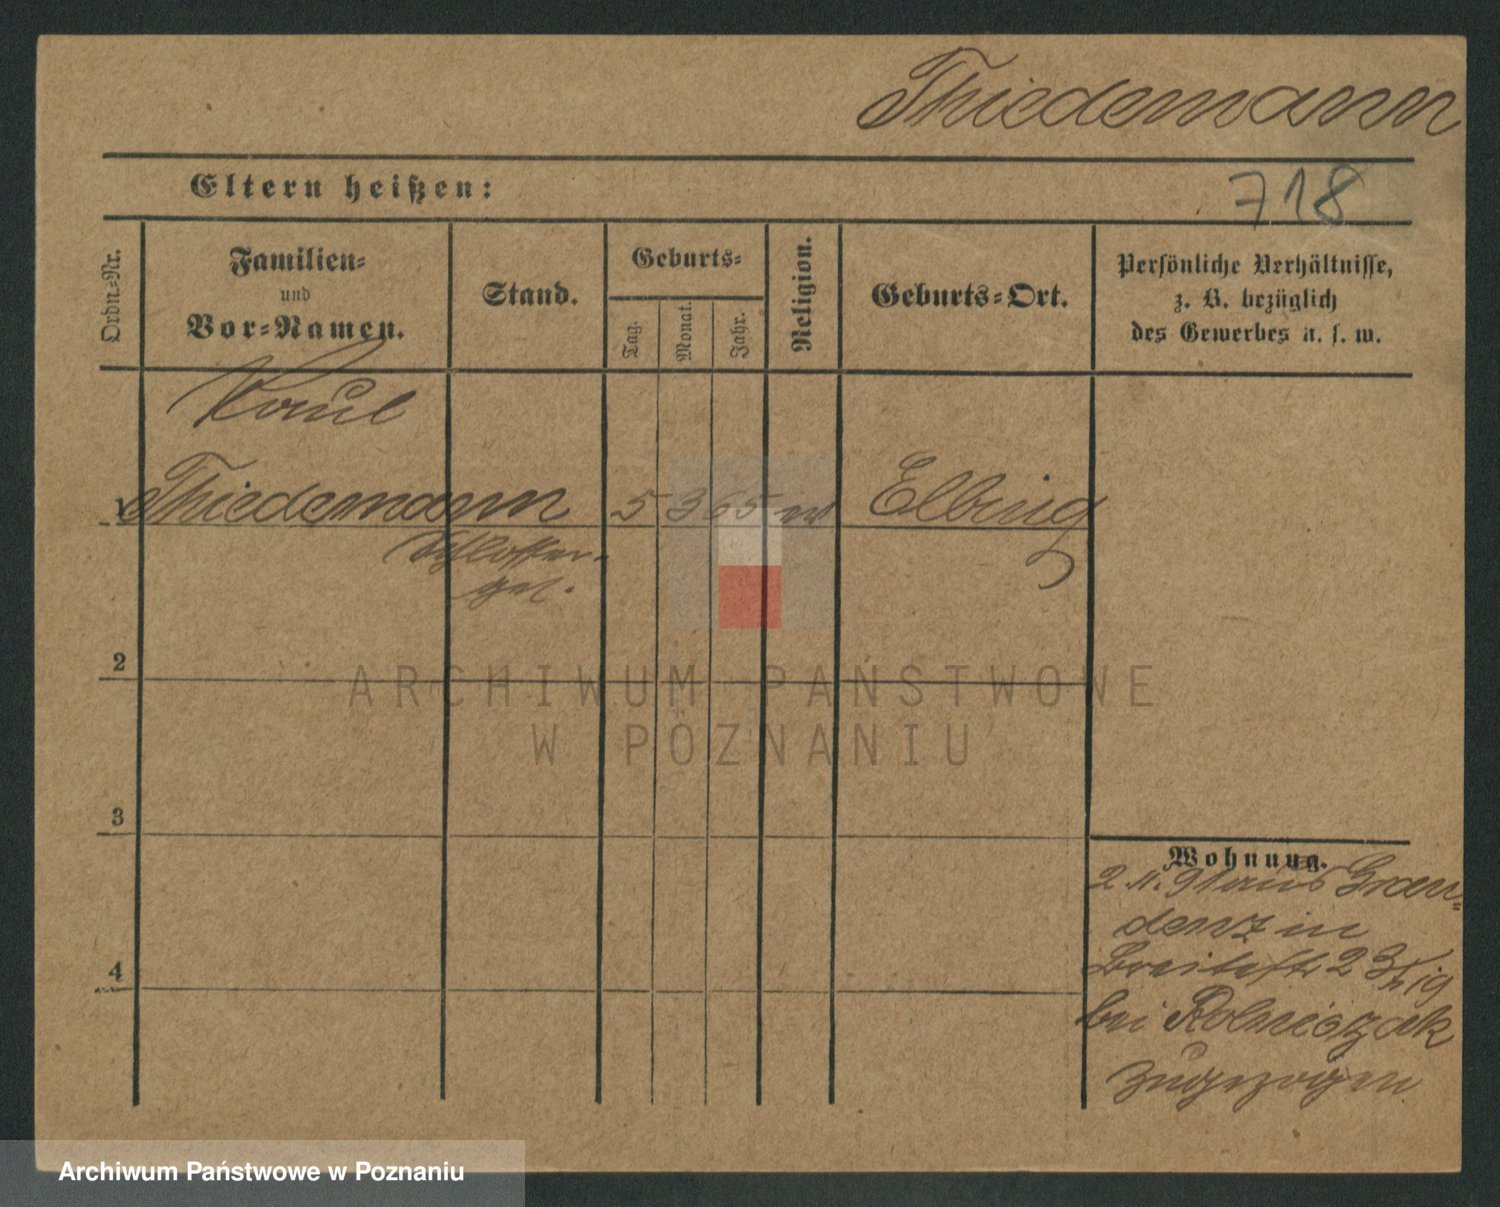 Thiedemann
Eltern heißen:
718
Ordn.-Nr.
Familien-
und
Vor-Namen.
Stand.
Geburts-
Tag.
Monat.
Jahr.
Religion.
Geburts-Ort.
Persönliche Verhältnisse,
z. B. bezüglich
des Gewerbes u. s. w.
Paul
1 Thiedemann 5 3 65 Elbing
Schlosser-
ges.
2
3
4
Wohnung.
2. 11. 91 aus Grau-
denz in
Breitestr 23
bei Robniczak
zugezogen
ARCHIWUM PAŃSTWOWE
W POZNANIU
Archiwum Państwowe w Poznaniu